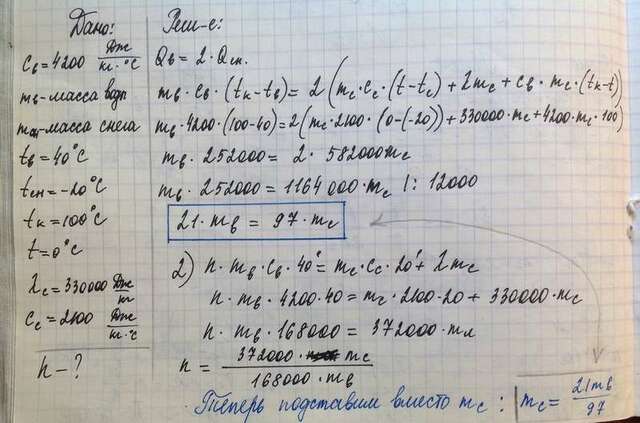 Дано:
Cв = 4200 Дж/кг·°C
mв - масса воды
mсн - масса снега
tв = 40°C
tсн = -20°C
tк = 100°C
t = 0°C
λс = 330000 Дж/кг
Cс = 2100 Дж/кг·°C
n - ?
Реш-е:
Qв = 2 · Qсн.
mв · Cв · (tк - tв) = 2 (mс · Cс · (t - tс) + λmс + Cв · mс · (tк - t)
mв · 4200 · (100 - 40) = 2(mс · 2100 · (0 - (-20)) + 330000 · mс + 4200 · mс · 100)
mв · 252000 = 2 · 582000mс
mв · 252000 = 1164000 · mс |: 12000
21 · mв = 97 · mс
2) n · mв · Cв · 40° = mс · Cс · 20° + λmс
n · mв · 4200 · 40 = mс · 2100 · 20 + 330000 · mс
n · mв · 168000 = 372000 · mл
n = 372000 · mс / 168000 · mв
Теперь подставим вместо mс : mс = 21mв / 97